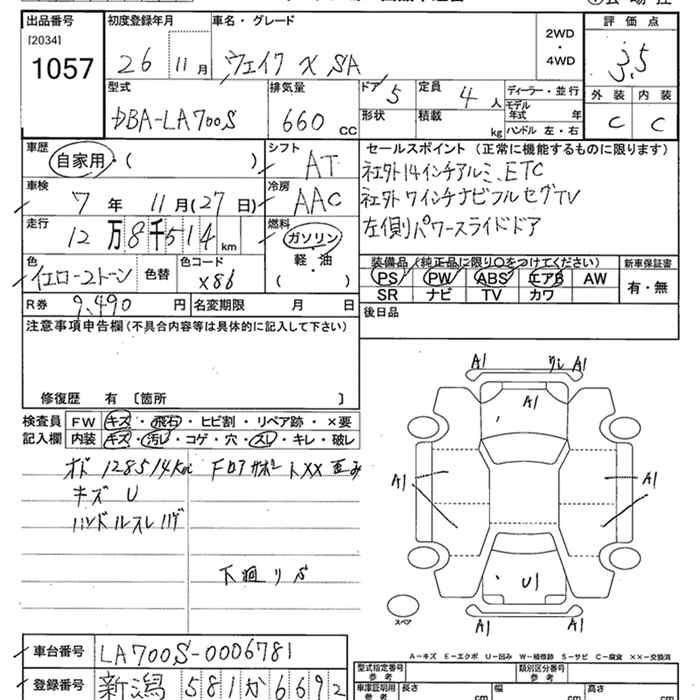 出品番号 初度登録年月 車名・グレード 評価点
[2034] 2WD
1057 26 11月 ウェイク X SA ・ 3.5
4WD
型式 排気量 ドア 5 定員 4人 ディーラー・並行 外装 内装
DBA-LA700S 660 CC 形状 積載 kg モデル年式 年 C C
ハンドル 左・右
車歴 シフト セールスポイント (正常に機能するものに限ります)
自家用・( ) AT 社外14インチアルミ、ETC
車検 冷房 社外ワインチナビフルセグTV
7年 11月(27日) AAC 左側パワースライドドア
走行 燃料
12万8千514km ガソリン
色 色替 色コード 軽・油 装備品(純正品に限り○をつけてください) 新車保証書
イエロー2トーン X86 ( ) PS PW ABS エアB AW 有・無
R券 9,490円 名変期限 月 日 SR ナビ TV カワ
注意事項申告欄(不具合内容等は具体的に記入して下さい) 後日品
修復歴 有〔箇所 〕
検査員 FW キズ・飛石・ヒビ割・リペア跡・×要
記入欄 内装 キズ・汚レ・コゲ・穴・スレ・キレ・破レ
オド 128514Km フロアサポートXX 歪み
キズ U
ハンドルスレハゲ
下廻りサビ
A1 A1
A1
A1 A1
U1
スペア A1 A1
A-キズ E-エクボ U-凹み W-補修跡 S-サビ C-腐食 ××-交換済
車台番号 LA700S-0006781
登録番号 新潟 581か6692
型式指定番号 参考 類別区分番号 参考
車庫証明用 参考 長さ cm 幅 cm 高さ cm